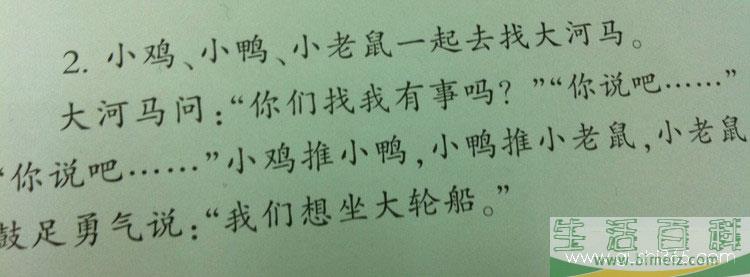 2. 小鸡、小鸭、小老鼠一起去找大河马。
大河马问：“你们找我有事吗？”“你说吧……”
“你说吧……”小鸡推小鸭，小鸭推小老鼠，小老鼠
鼓足勇气说：“我们想坐大轮船。”
生活百科
www.bimeiz.com